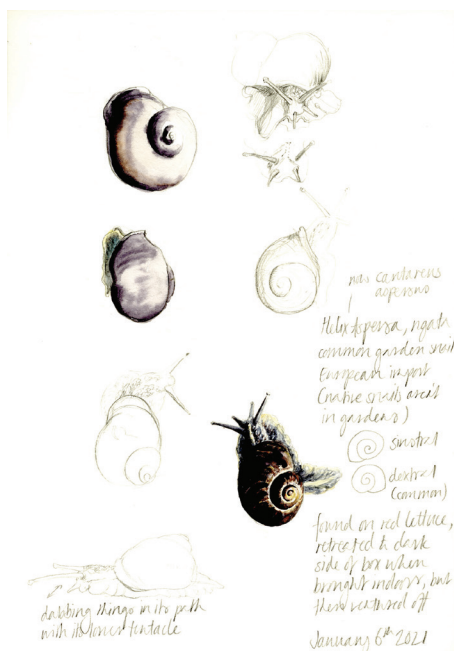 now cantareus
aspersus
Helix Aspersa, ngata
common garden snail
European import
(native snails aren't
in gardens)
sinistral
dextral
(common)
found on red lettuce,
retreated to dark
side of box when
brought indoors, but
then ventured off
dabbing things in its path
with its lower tentacle
January 6th 2021